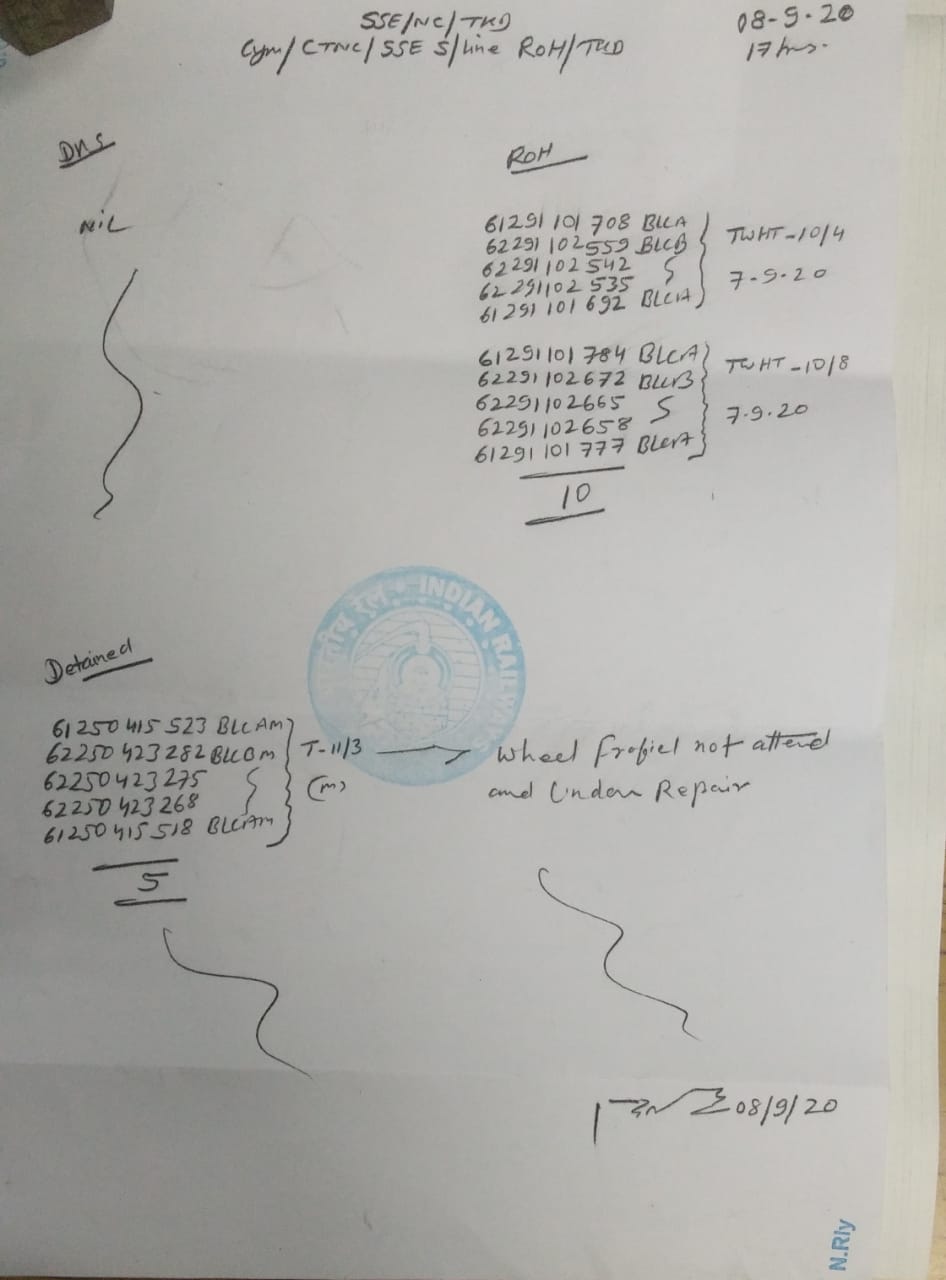 SSE/NC/TKD
Cym/CTNC/SSE S/Line ROH/TKD
08-9-20
17 hrs.
DNS
NIL
ROH
61291101708 BLCA
62291102559 BLCB
62291102542
62291102535
61291101692 BLCA
TWHT-10/4
7-9-20
61291101784 BLCA
62291102672 BLCB
62291102665
62291102658
61291101777 BLCA
TWHT-10/8
7-9-20
10
भारतीय रेल INDIAN RAILWAYS
Detained
61250415523 BLCAM
62250423282 BLCBM
62250423275
62250423268
61250415518 BLCAM
T-11/3
(M)
Wheel Profiel not attend
and Under Repair
5
08/9/20
N.Rly